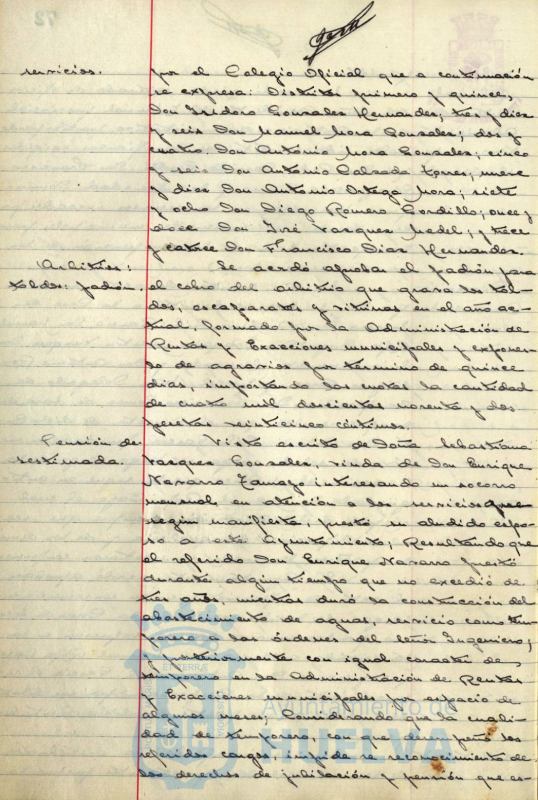 servicios.
por el Colegio Oficial que a continuación
se expresa: Distritos primero y quince,
Don Isidoro Gonzales Hernandez; tres y diez
y seis Don Manuel Mora Gonzales; dos y
cuatro Don Antonio Mora Gonzales; cinco
y seis Don Antonio Calzada Torres; nueve
y diez Don Antonio Ortega Mora; siete
y ocho Don Diego Romero Gordillo; once y
doce Don José Vazquez Medel; y trece
y catorce Don Francisco Diaz Hernandez.
Arbitrios:
toldos: padrón.
Se acordó aprobar el padrón para
el cobro del arbitrio que grava los tol-
dos, escaparates y vitrinas en el año ac-
tual, formado por la Administración de
Rentas y Exacciones municipales y exponer-
lo de agravios por término de quince
dias, importando las cuotas la cantidad
de cuatro mil doscientas noventa y dos
pesetas veinticinco céntimos.
Pensión de-
sestimada.
Visto escrito de Doña Sebastiana
Vazquez Gonzales, viuda de Don Enrique
Navarro Tamayo interesando un socorro
mensual en atención a los servicios que
según manifiesta, prestó su aludido espo-
so a este Ayuntamiento; Resultando que
el referido Don Enrique Navarro prestó
durante algún tiempo que no excedió de
tres años, mientras duró la construcción del
abastecimiento de aguas, servicio como tem-
porero a las órdenes del Señor Ingeniero;
y posteriormente con igual caracter de
temporero en la Administración de Rentas
y Exacciones municipales por espacio de
algunos meses; Considerando que la cuali-
dad de temporero, con que desempeñó los
referidos cargos, impide se reconocimiento de
los derechos de jubilación y pensión que es-
Ayuntamiento de
HUELVA